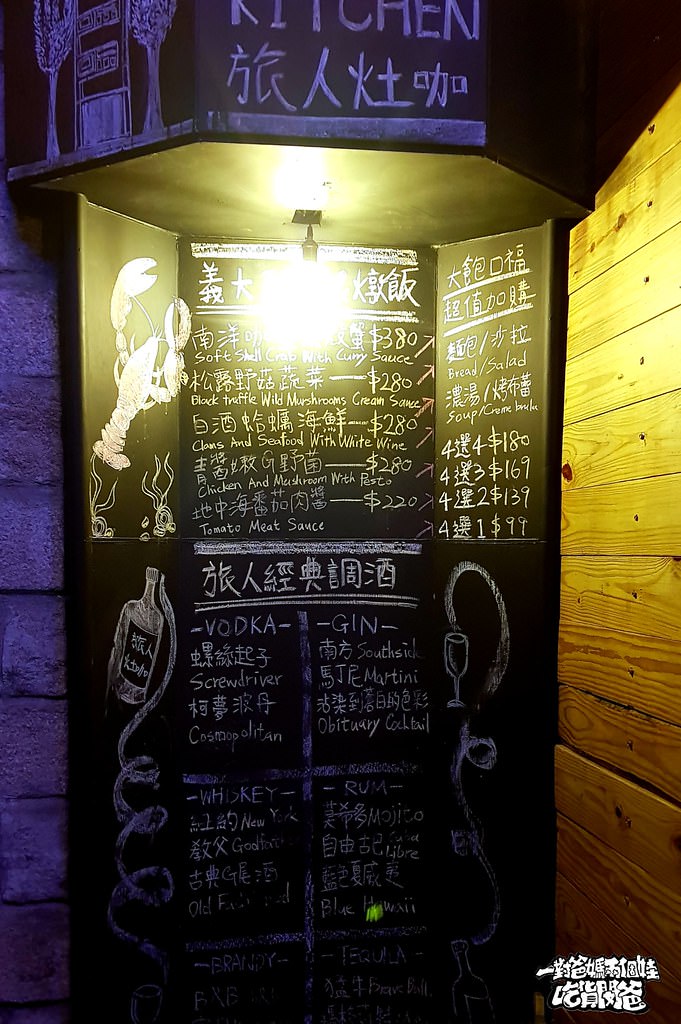 KITCHEN
旅人灶咖
義大 燉飯
南洋咖 蟹 $380
Soft Shell Crab With Curry Sauce
松露野菇蔬菜 — $280
Black truffle Wild Murshrooms Cream Sauce
白酒蛤蠣海鮮 — $280
Clans And Seafood With White Wine
青醬嫩G野菌 — $280
Chicken And Mushroom With Pesto
地中海番茄肉醬 — $220
Tomato Meat Sauce
大飽口福
超值加購
麵包/沙拉
Bread/Salad
濃湯/烤布蕾
Soup/Creme brulu
4選4 $180
4選3 $169
4選2 $139
4選1 $99
旅人經典調酒
旅人
灶咖
-VODKA-
螺絲起子
Screwdriver
柯夢波丹
Cosmopolitan
-GIN-
南方 Southside
馬丁尼 Martini
沾染到落日的色彩
Obituary Cocktail
-WHISKEY-
紐約 New York
教父 Godfather
古典G尾酒
Old
-RUM-
莫希多 Mojito
自由古巴 Cuba
Libre
藍色夏威夷
Blue Hawaii
-BRANDY-
B&B
-TEQUILA-
猛牛 Brave Bull
一對爸媽兩個娃
吃貨閃爸